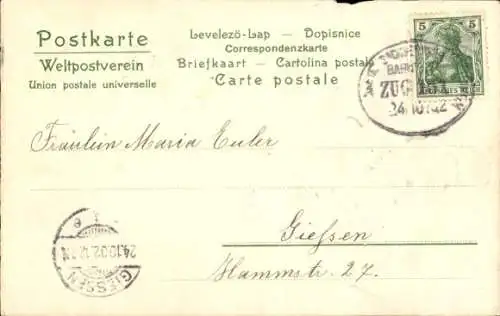 Postkarte
Weltpostverein
Union postale universelle
Levelezö-Lap — Dopisnice
Correspondenzkarte
Briefkaart — Cartolina postale
Carte postale
5 5
ZUG
24.10.02
Fräulein Maria Euler
Giessen
Hammstr. 27.
24.10.02
GIESSEN